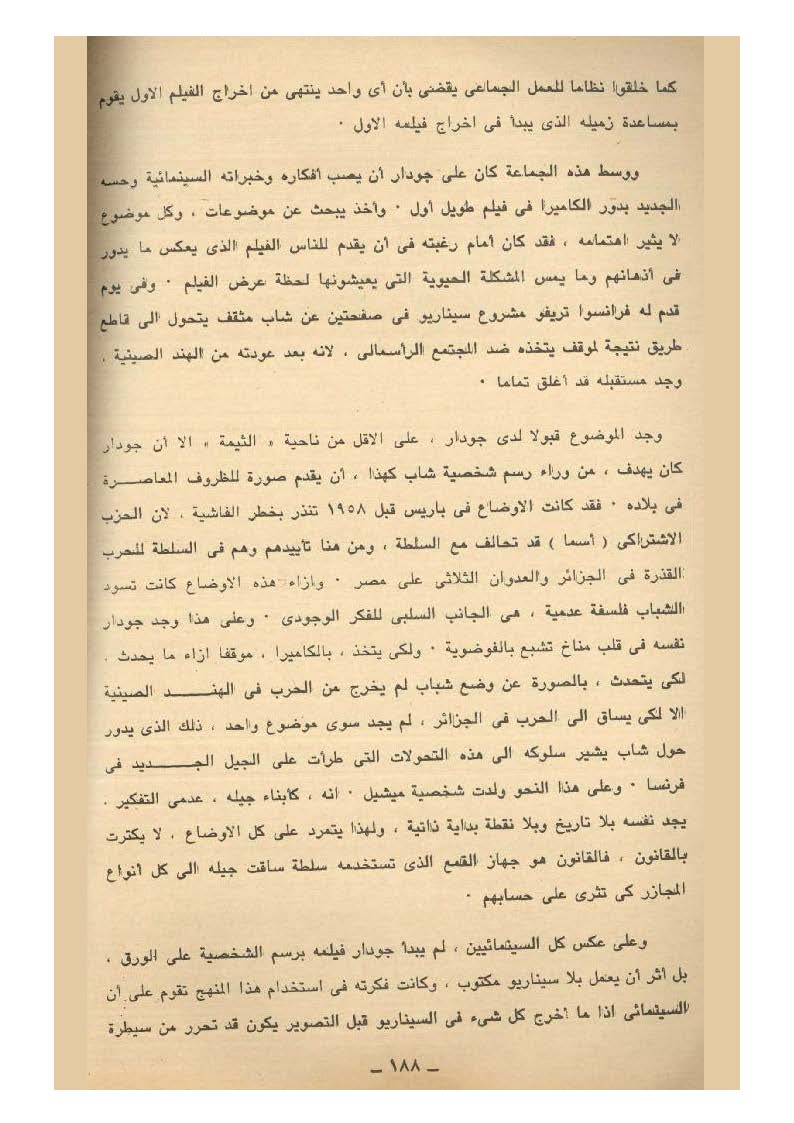 كما خلقوا نظاما للعمل الجماعى يقضى بأن أى واحد ينتهى من اخراج الفيلم الاول يقوم
بمساعدة زميله الذى يبدأ فى اخراج فيلمه الاول ٠
ووسط هذه الجماعة كان على جودار أن يصب أفكاره وخبراته السينمائية وحسه
الجديد بدور الكاميرا فى فيلم طويل أول ٠ وأخذ يبحث عن موضوعات ، وكل موضوع
لا يثير اهتمامه ، فقد كان أمام رغبته فى أن يقدم للناس الفيلم الذى يعكس ما يدور
فى أذهانهم وما يمس المشكلة الحيوية التى يعيشونها لحظة عرض الفيلم ٠ وفى يوم
قدم له فرانسوا تريفو مشروع سيناريو فى صفحتين عن شاب مثقف يتحول الى قاطع
طريق نتيجة لموقف يتخذه ضد المجتمع الرأسمالى ، لانه بعد عودته من الهند الصينية ،
وجد مستقبله قد أغلق تماما ٠
وجد الموضوع قبولا لدى جودار ، على الاقل من ناحية « الثيمة » الا أن جودار
كان يهدف ، من وراء رسم شخصية شاب كهذا ، أن يقدم صورة للظروف المعاصـــرة
فى بلاده ٠ فقد كانت الاوضاع فى باريس قبل ١٩٥٨ تنذر بخطر الفاشية ، لان الحزب
الاشتراكى ( أسما ) قد تحالف مع السلطة ، ومن هنا تأييدهم وهم فى السلطة للحرب
القذرة فى الجزائر والعدوان الثلاثى على مصر ٠ وازاء هذه الاوضاع كانت تسود
الشباب فلسفة عدمية ، هى الجانب السلبى للفكر الوجودى ٠ وعلى هذا وجد جودار
نفسه فى قلب مناخ تشبع بالفوضوية ٠ ولكى يتخذ ، بالكاميرا ، موقفا ازاء ما يحدث ،
لكى يتحدث ، بالصورة عن وضع شباب لم يخرج من الحرب فى الهنـــد الصينية
الا لكى يساق الى الحرب فى الجزائر ، لم يجد سوى موضوع واحد ، ذلك الذى يدور
حول شاب يشير سلوكه الى هذه التحولات التى طرأت على الجيل الجـــــديد فى
فرنسا ٠ وعلى هذا النحو ولدت شخصية ميشيل ٠ انه ، كأبناء جيله ، عدمى التفكير ،
يجد نفسه بلا تاريخ وبلا نقطة بداية ذاتية ، ولهذا يتمرد على كل الاوضاع ، لا يكترث
بالقانون ، فالقانون هو جهاز القمع الذى تستخدمه سلطة ساقت جيله الى كل أنواع
المجازر كى تثرى على حسابهم ٠
وعلى عكس كل السينمائيين ، لم يبدأ جودار فيلمه برسم الشخصية على الورق ،
بل أثر أن يعمل بلا سيناريو مكتوب ، وكانت فكرته فى استخدام هذا المنهج تقوم على أن
السينمائى اذا ما أخرج كل شىء فى السيناريو قبل التصوير يكون قد تحرر من سيطرة
ـ ١٨٨ ـ